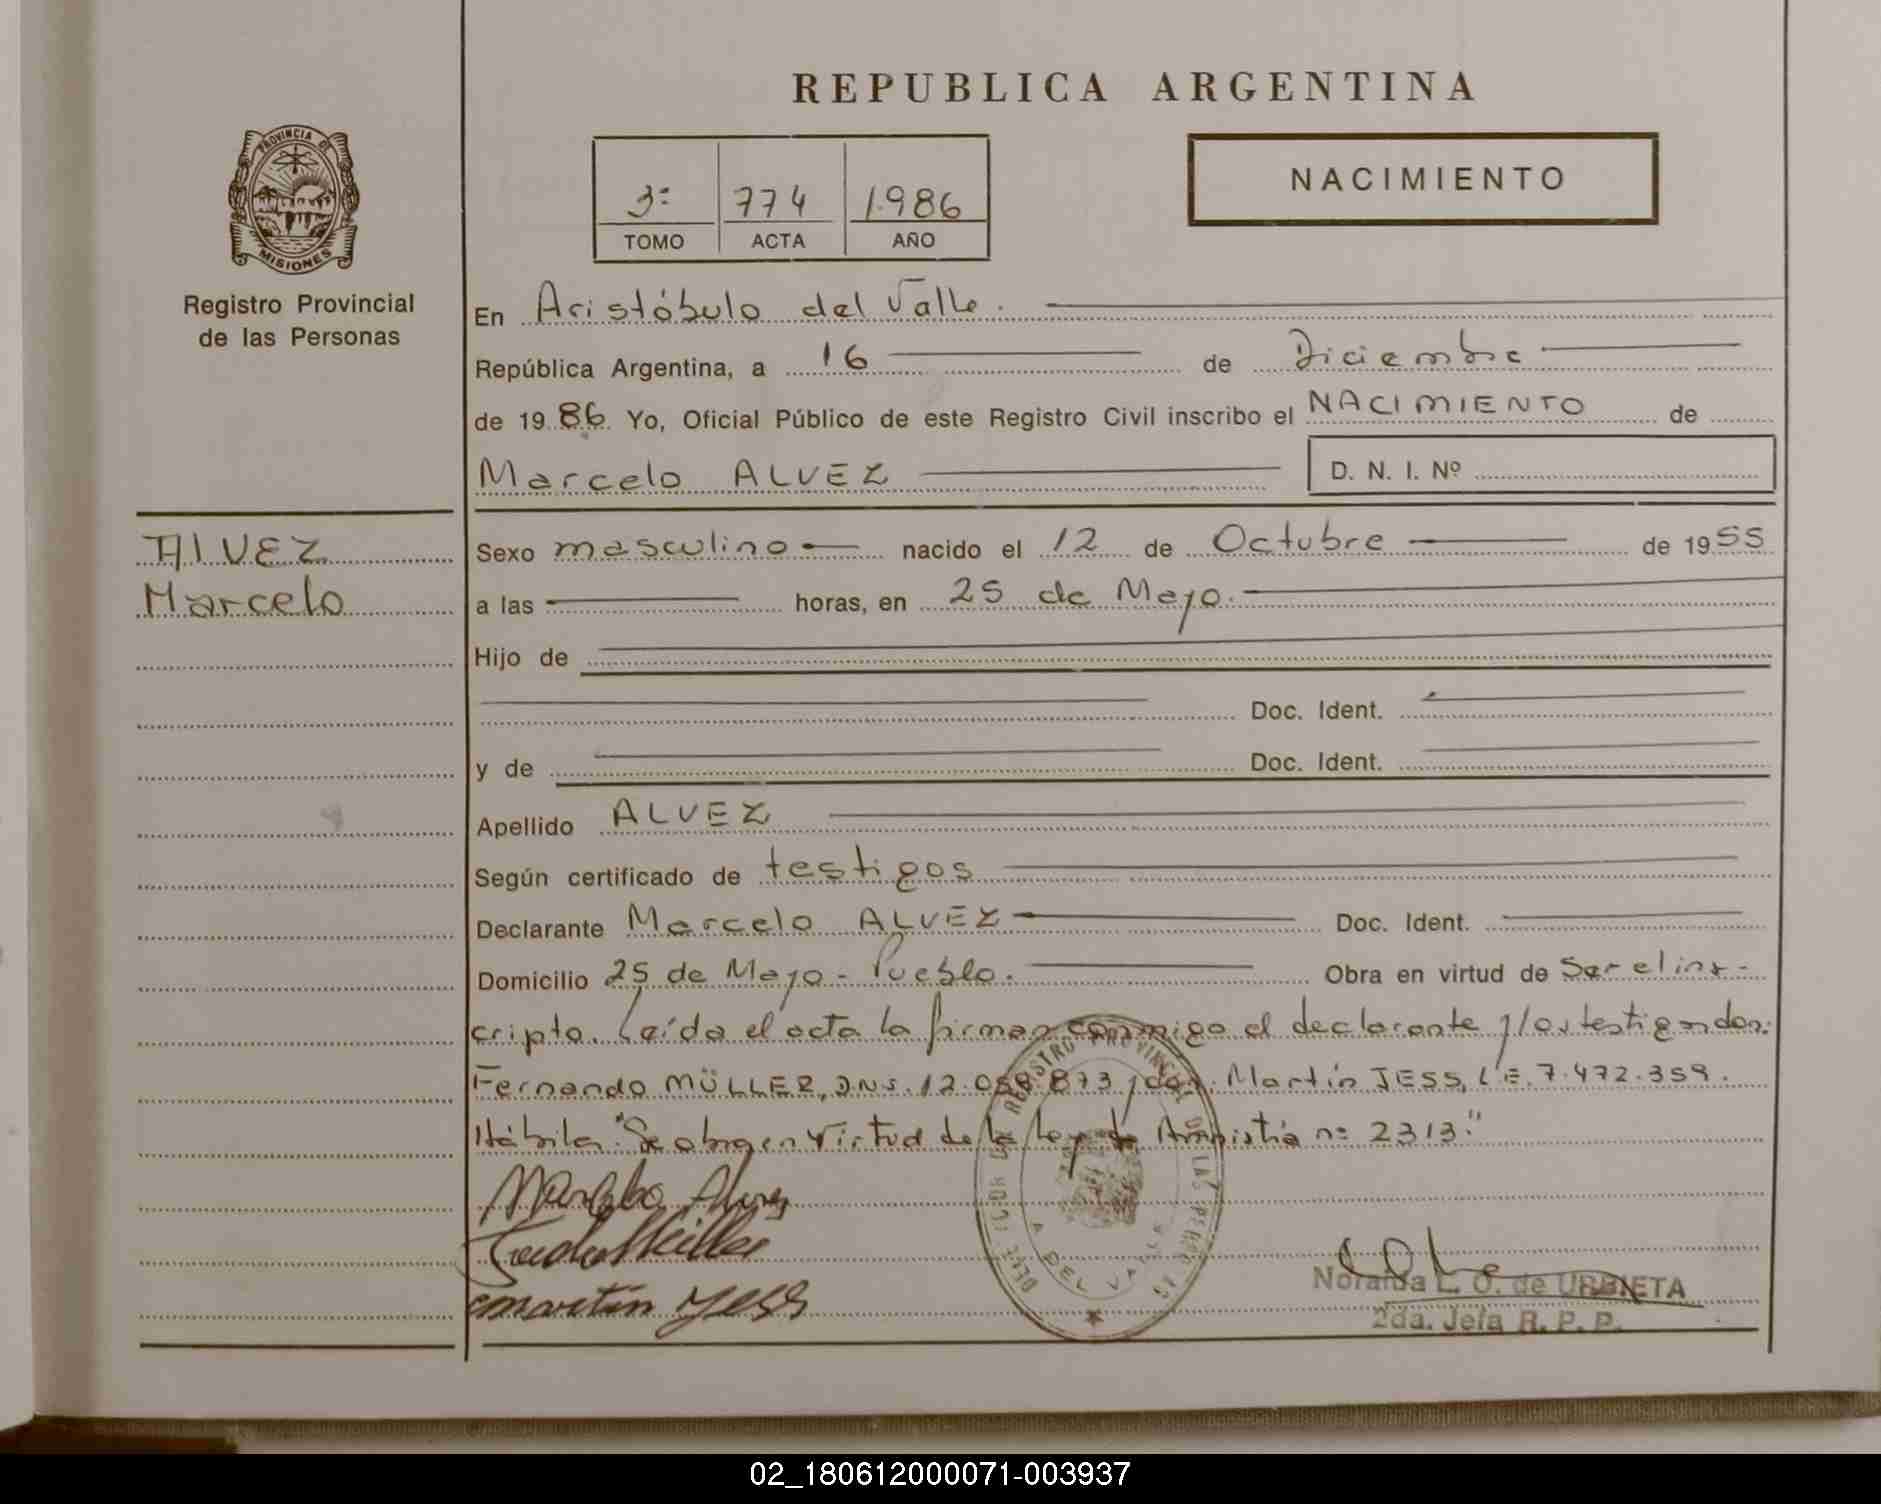 REPUBLICA ARGENTINA
PROVINCIA DE
MISIONES
Registro Provincial
de las Personas
3º 774 1.986
TOMO ACTA AÑO
NACIMIENTO
En Aristóbulo del Valle.
República Argentina, a 16 de Diciembre
de 19 86 Yo, Oficial Público de este Registro Civil inscribo el NACIMIENTO de
Marcelo ALVEZ D. N. I. Nº
ALVEZ
Marcelo
Sexo masculino nacido el 12 de Octubre de 19 55
a las horas, en 25 de Mayo.
Hijo de
Doc. Ident.
y de Doc. Ident.
Apellido ALVEZ
Según certificado de testigos
Declarante Marcelo ALVEZ Doc. Ident.
Domicilio 25 de Mayo - Pueblo. Obra en virtud de
cripto. Leída el acta la firman conmigo el declarante y los testigos don:
Fernando MÜLLER, D.N.I. 12.0 873 y don: Martín JESS, L.E. 7.472.359.
Hábiles "Se obra en virtud de la Ley de Amnistía nº 2313."
Marcelo Alvez
Müller
martin Jess
DELEG REGISTRO PROVINCIAL DE LAS PERSONAS
A DEL VALLE
Noraida L. O. de URBIETA
2da. Jefa R. P. P.
02_180612000071-003937